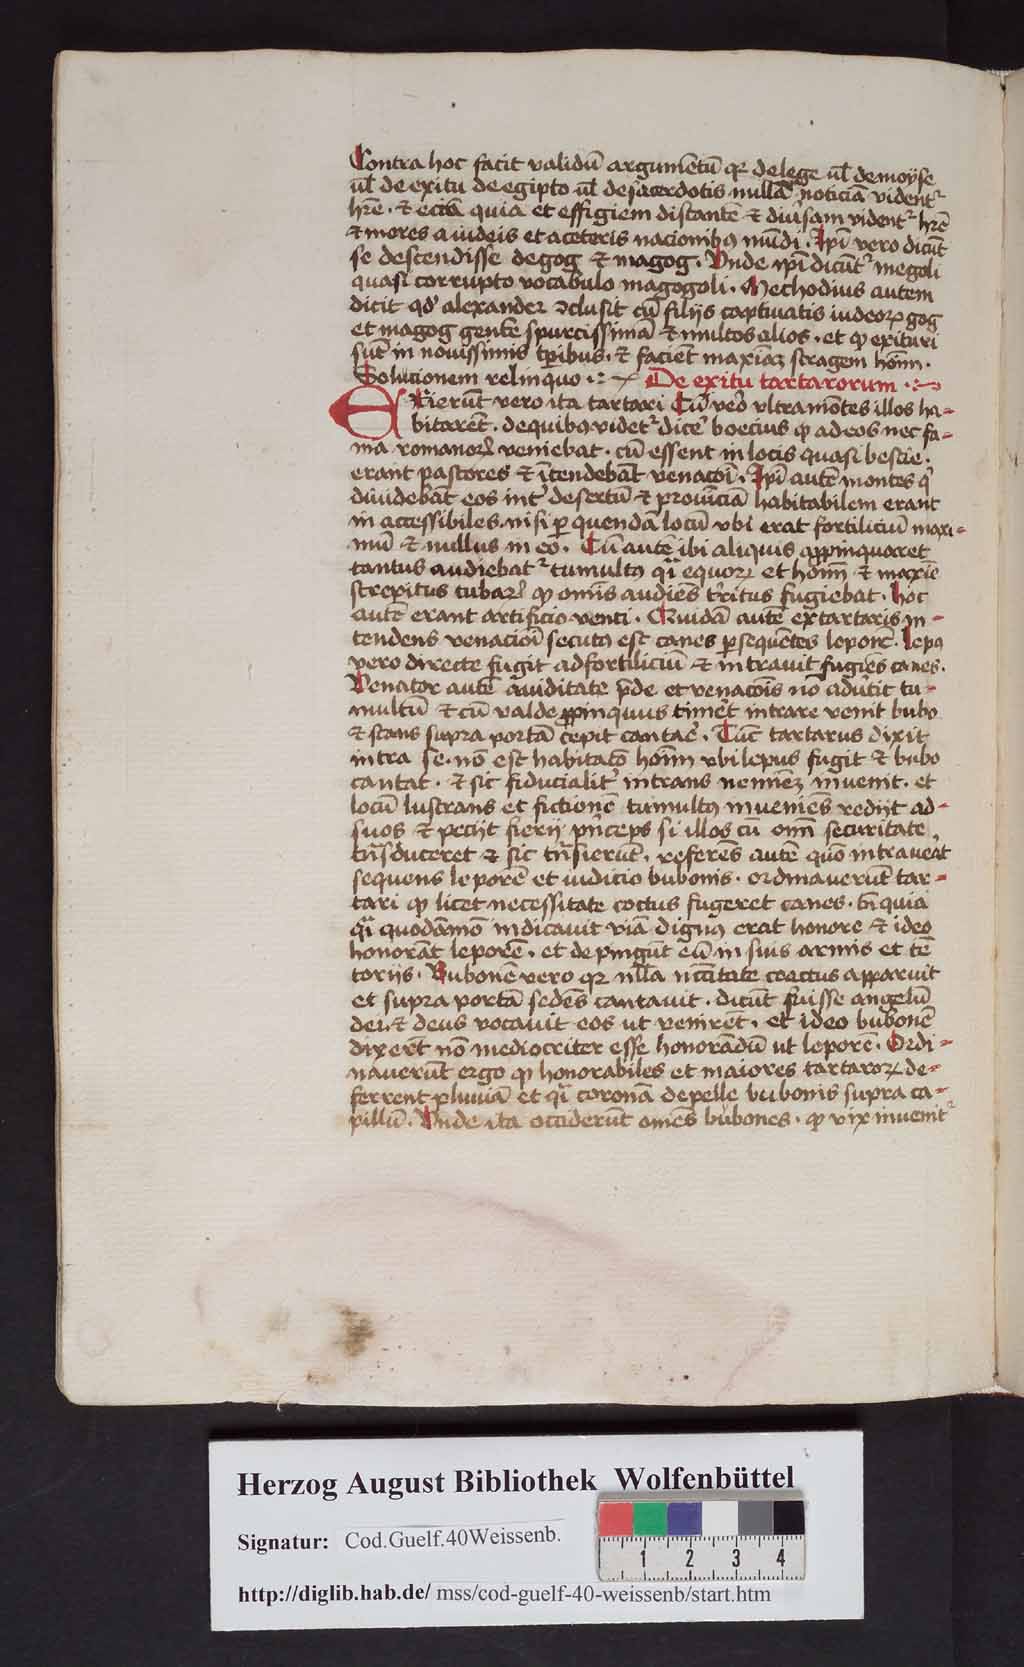 Contra hoc facit validū argumētū qr de lege ul' de moyse
ul' de exitu de egipto ul' de sacerdotis nullā noticiā vident᷑
hr̄e · & eciā quia et effigiem distantē & diu̓sam vident᷑ hr̄e
& mores a iudeis et a ceteris nacionibꝰ mūdi · Ipī vero dicūt
se descendisse de gog & magog · Unde ipī dicūt᷑ megoli
quasi corrupto vocabulo magogoli · Methodius autem
dicit qd' alexander ꝯclusit cū filijs captiuatis iudeoꝝ gog
et magog gentē spurcissimā & multos alios · et ꝙ exituri
sūt in nouissimis tp̄ribus · & faciēt maxīaꝫ stragem hoīm ·
Solucionem relinquo · De exitu tartarorum ·
Exierūt vero ita tartari Cū vero vltra mōtes illos ha-
bitarēt · de quibꝰ videt᷑ dice᷑ boecius ꝙ ad eos nec fa-
ma romanoꝝ veniebat · cū essent in locis quasi bestie ·
erant pastores & ītendebāt venacōi · Ipī autē montes q'
diuidebāt eos int᷑ desertū & prouīciā habitabilem erant
in accessibiles · nisi ꝑ quendā locū vbi erat fortiliciū maxi-
mū & nullus in eo · Cū autē ibi aliquis apꝓpinquaret
tantus audiebat᷑ tumultꝰ q̄i equoꝝ et hoīm & maxīe
strepitus tubaꝝ ꝙ omīs audiēs t̓ritus fugiebat · hoc
autē erant artificio venti · Quidā autē ex tartaris in-
tendens venacioī secutꝰ est canes ꝑsequētes leporē · lepꝰ
vero directe fugit ad fortiliciū & intrauit fugiēs canes ·
Venator autē auiditate p̄de et venacōis nō adu̓tit tu-
multū & cū valde ꝓpinquus tim̓et intrare venit bubo
& stans supra portā cepit canta᷑ · Tūc tartarus dixit
intra se · nō est habitatō hoīm vbi lepus fugit & bubo
cantat · & sic fiducialit᷑ intrans neminēꝫ inuenit · et
locū lustrans et fictionē tumultꝰ inueniēs redijt ad
suos & pecijt fierij p̄nceps si illos cū om̄i securitate
trāsduceret & sic trāsierūt · referēs autē quō intrau̓at
sequens leporē et iudicio bubonis · ordinauerūt tar-
tari ꝙ licet necessitate coctus fugeret canes · tn̄ quia
q̄i quodāmō indicauit viā dignꝰ erat honore & ideo
honorāt leporē · et depingūt eū in suis armis et tē
torijs · Bubonē vero qr nlla̅ nc̄citate coactus apparuit
et supra portā sedēs cantauit · dicūt fuisse angelū
dei · & deus vocauit eos ut venirēt · et ideo bubonē
dixerūt nō mediocriter esse honorādū ut leporē · Ordi-
nauerūt ergo ꝙ honorabiles et maiores tartaroꝝ de-
ferrent pluuiā et q̄i coronā de pelle bubonis supra ca-
pillū · Unde ita occiderūt omēs bubones · ꝙ vix inuenit᷑
Herzog August Bibliothek Wolfenbüttel
Signatur: Cod.Guelf.40Weissenb.
1 2 3 4
http://diglib.hab.de/ mss/cod-guelf-40-weissenb/start.htm